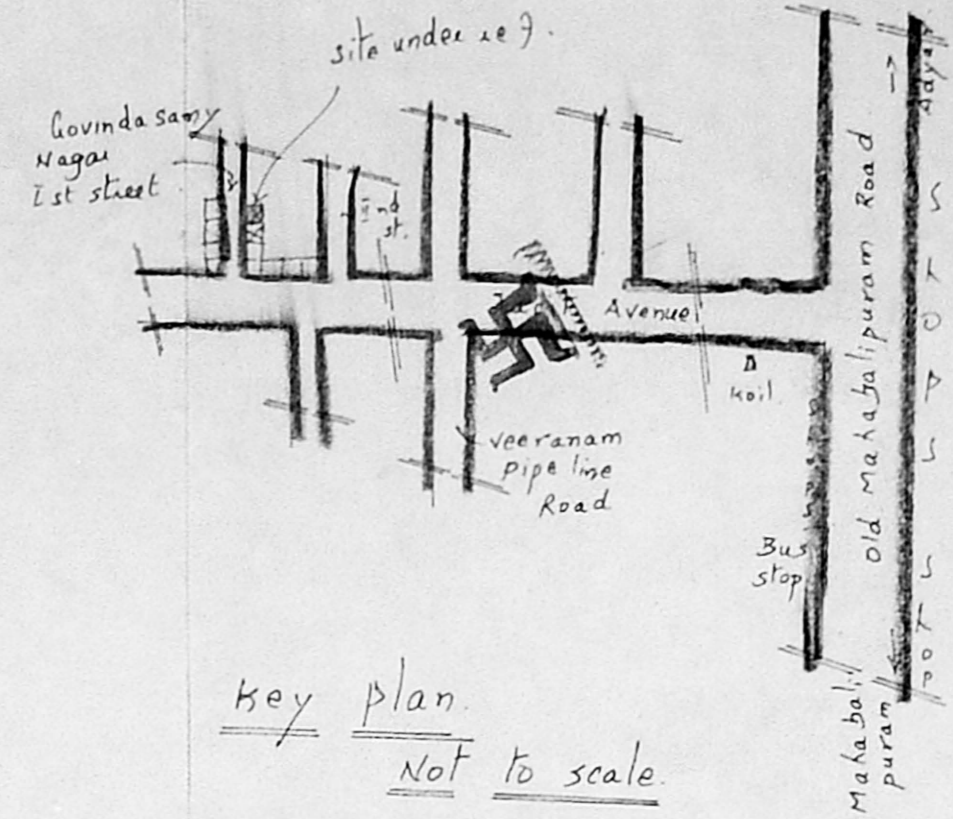 site under ref.
Govindasamy
Nagar
Ist street
IInd
st.
Avenue
Koil
Veeranam
pipe line
Road
Bus
stop
Old Mahabalipuram Road
Adyar
Mahabali
puram
Key plan.
Not to scale.